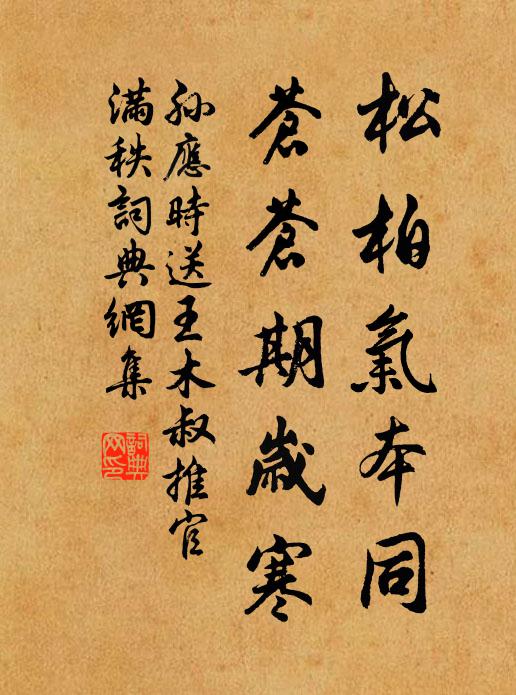 松柏氣本同
蒼蒼期歲寒
孙應時送王木叔推官
滿秩詞典網集
詞典网印